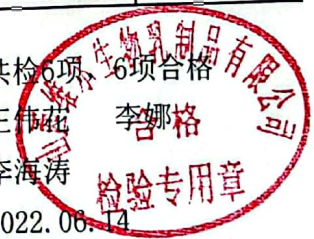 共检6项、6项合格
王伟花 李娜
李海涛
2022.06.14
生物乳制品有限公司
合格
检验专用章